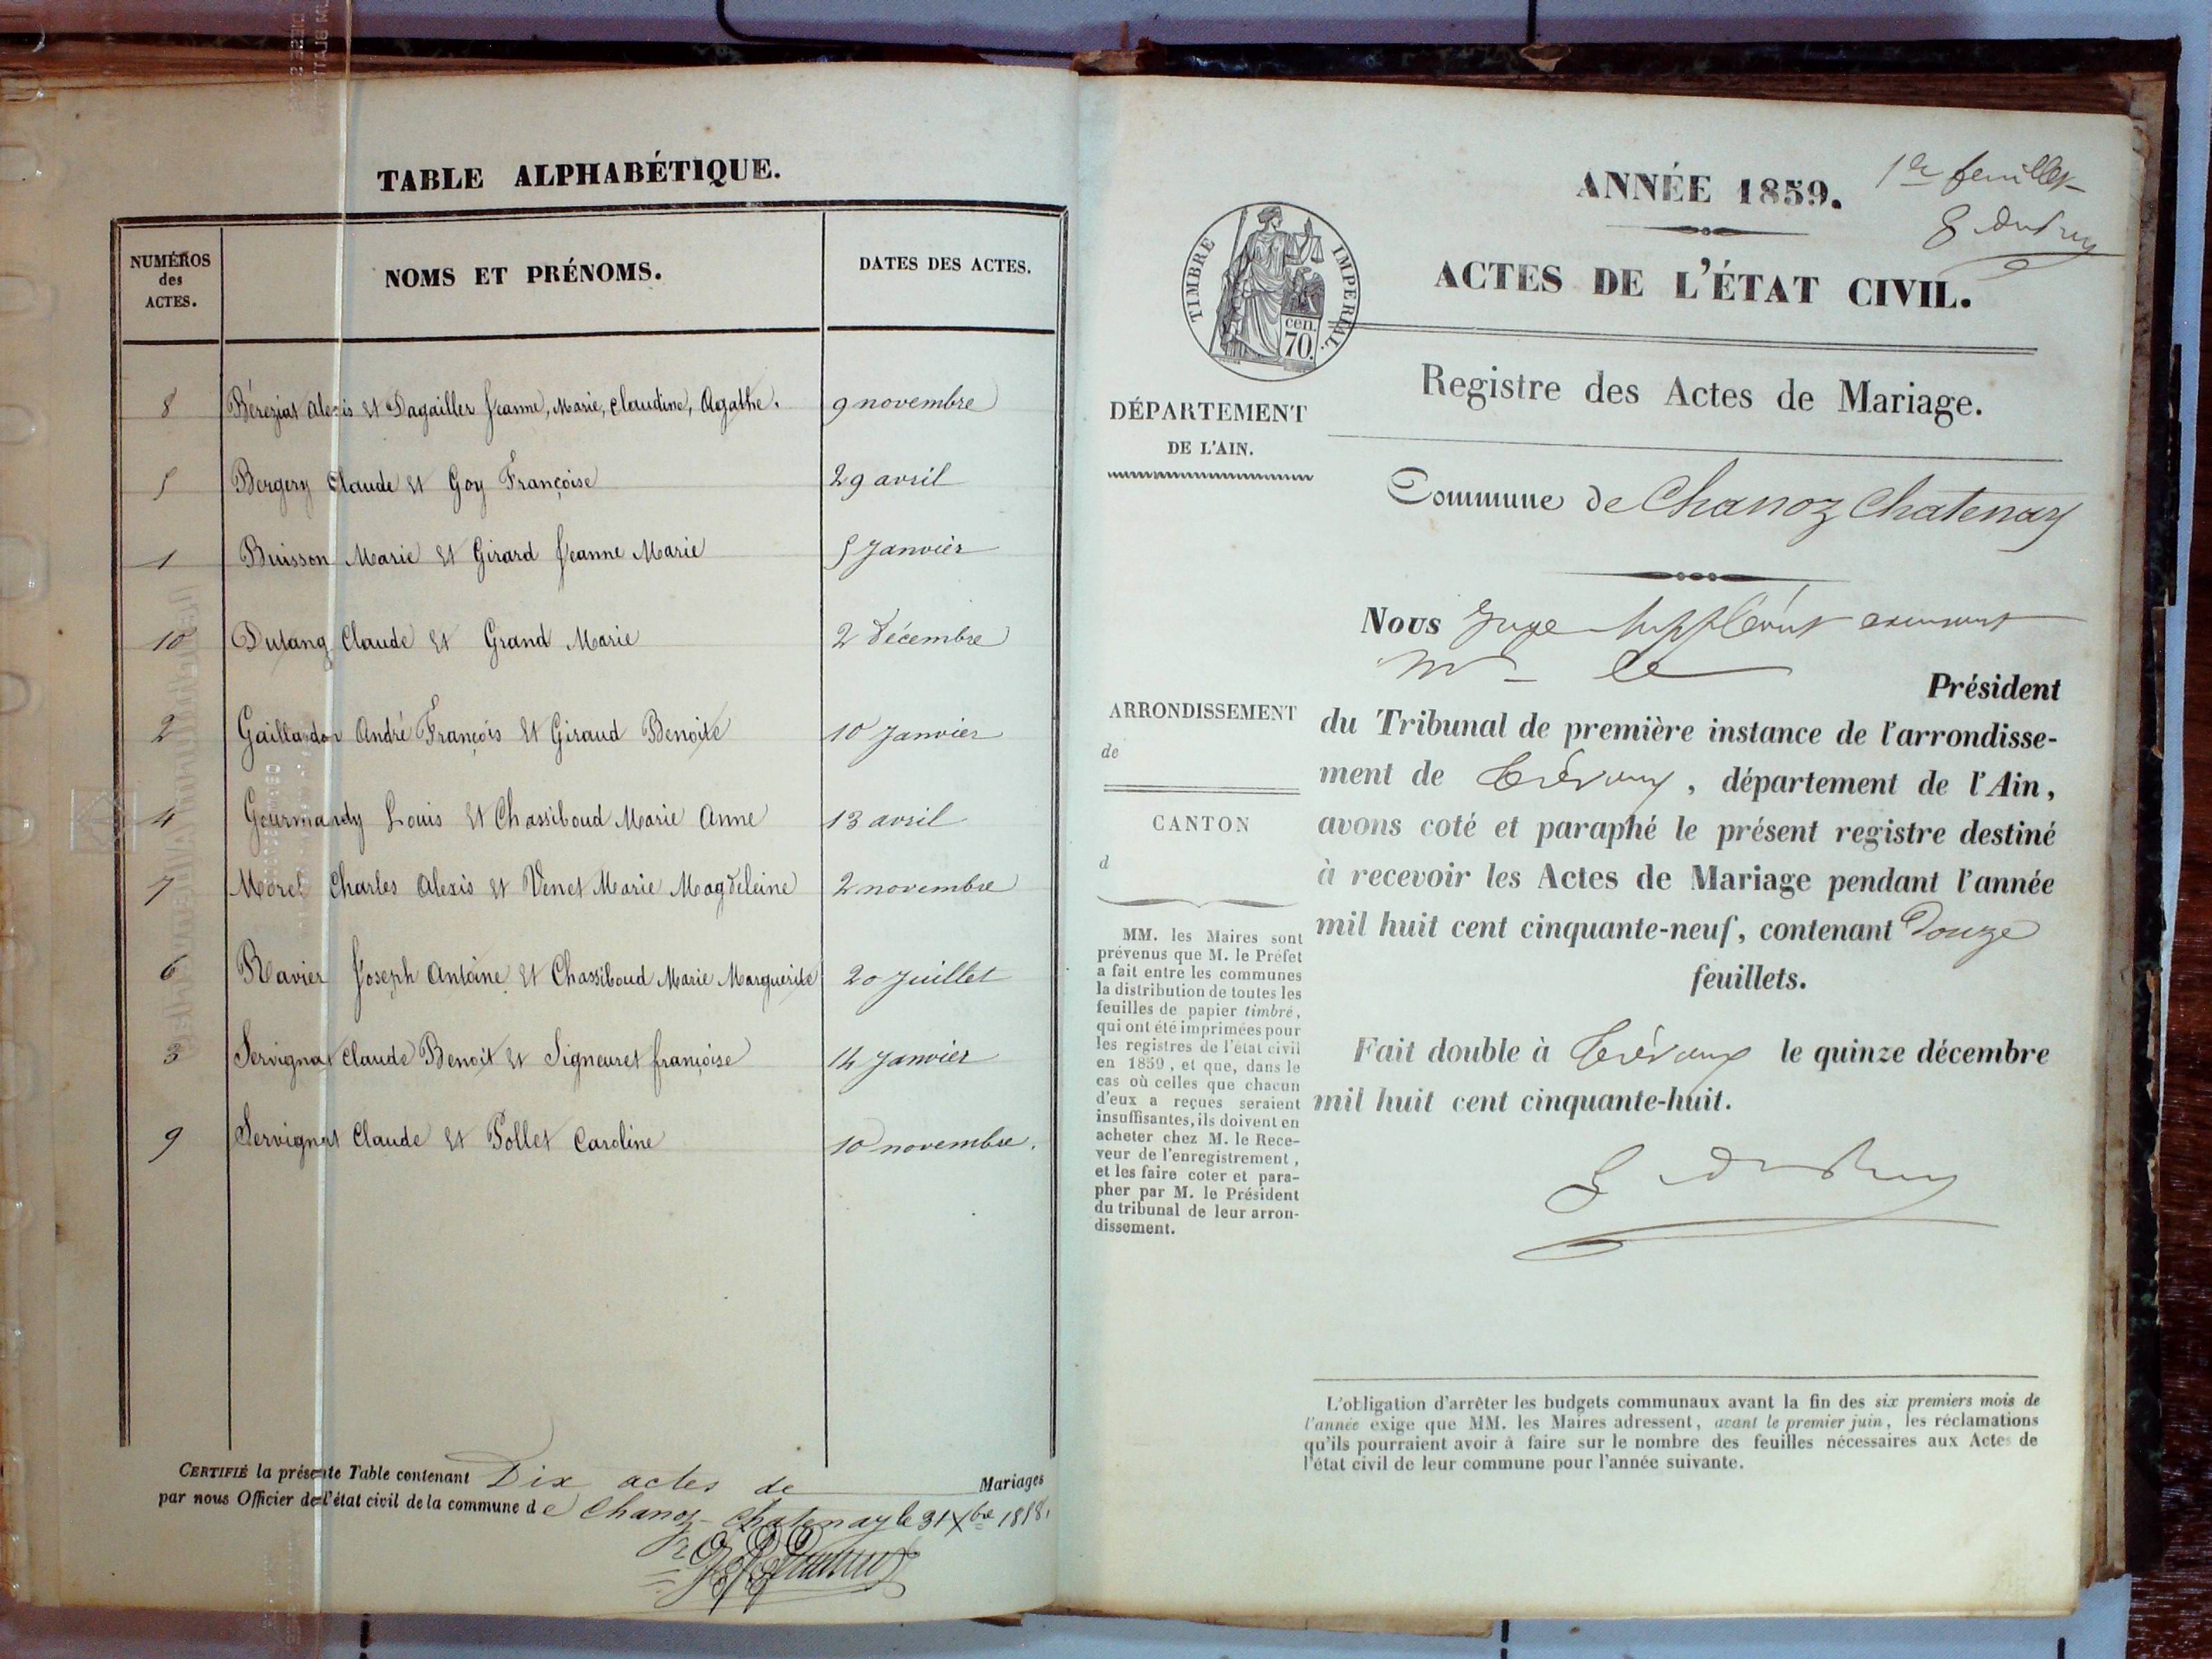 TABLE ALPHABÉTIQUE.
NUMÉROS des ACTES.
NOMS ET PRÉNOMS.
DATES DES ACTES.
8 Béreziat Alexis et Dagailler Jeanne, Marie, Claudine, Agathe. 9 novembre
5 Bergery Claude et Goy Françoise 29 avril
1 Buisson Marie et Girard Jeanne Marie 5 Janvier
10 Dutang Claude et Grand Marie 2 décembre
2 Gaillardon André François et Giraud Benoite 10 Janvier
4 Gourmandy Louis et Chassiboud Marie Anne 13 avril
7 Morel Charles Alexis et Venet Marie Magdeleine 2 novembre
6 Ravier Joseph Antoine et Chassiboud Marie Marguerite 20 Juillet
3 Servignat Claude Benoit et Signeuret françoise 14 Janvier
9 Servignat Claude et Pollet Caroline 10 novembre.
CERTIFIÉ la présente Table contenant Dix actes de Mariages
par nous Officier de l'état civil de la commune de Chanoz-Chatenay le 31 Xbre 1858.
1er feuillet
ANNÉE 1859.
ACTES DE L'ÉTAT CIVIL.
TIMBRE IMPERIAL.
cen.
70.
Registre des Actes de Mariage.
DÉPARTEMENT
DE L'AIN.
Commune de Chanoz Chatenay
Nous Juge suppléant
Mr le
Président
ARRONDISSEMENT
de
CANTON
d
du Tribunal de première instance de l'arrondisse-
ment de Trévoux, département de l'Ain,
avons coté et paraphé le présent registre destiné
à recevoir les Actes de Mariage pendant l'année
mil huit cent cinquante-neuf, contenant Douze
feuillets.
Fait double à Trévoux le quinze décembre
mil huit cent cinquante-huit.
MM. les Maires sont
prévenus que M. le Préfet
a fait entre les communes
la distribution de toutes les
feuilles de papier timbré,
qui ont été imprimées pour
les registres de l'état civil
en 1859, et que, dans le
cas où celles que chacun
d'eux a reçues seraient
insuffisantes, ils doivent en
acheter chez M. le Rece-
veur de l'enregistrement,
et les faire coter et para-
pher par M. le Président
du tribunal de leur arron-
dissement.
L'obligation d'arrêter les budgets communaux avant la fin des six premiers mois de
l'année exige que MM. les Maires adressent, avant le premier juin, les réclamations
qu'ils pourraient avoir à faire sur le nombre des feuilles nécessaires aux Actes de
l'état civil de leur commune pour l'année suivante.